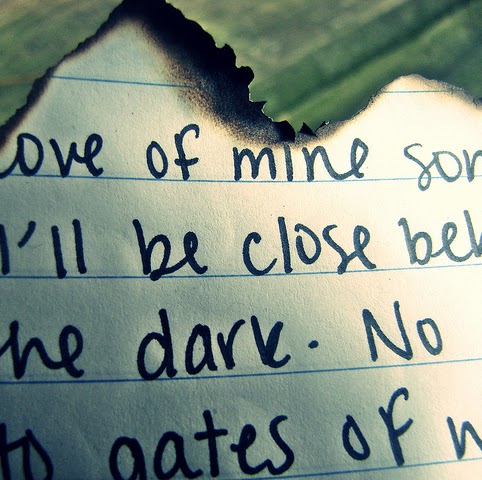 ove of mine som
I'll be close beh
he dark. No
to gates of w